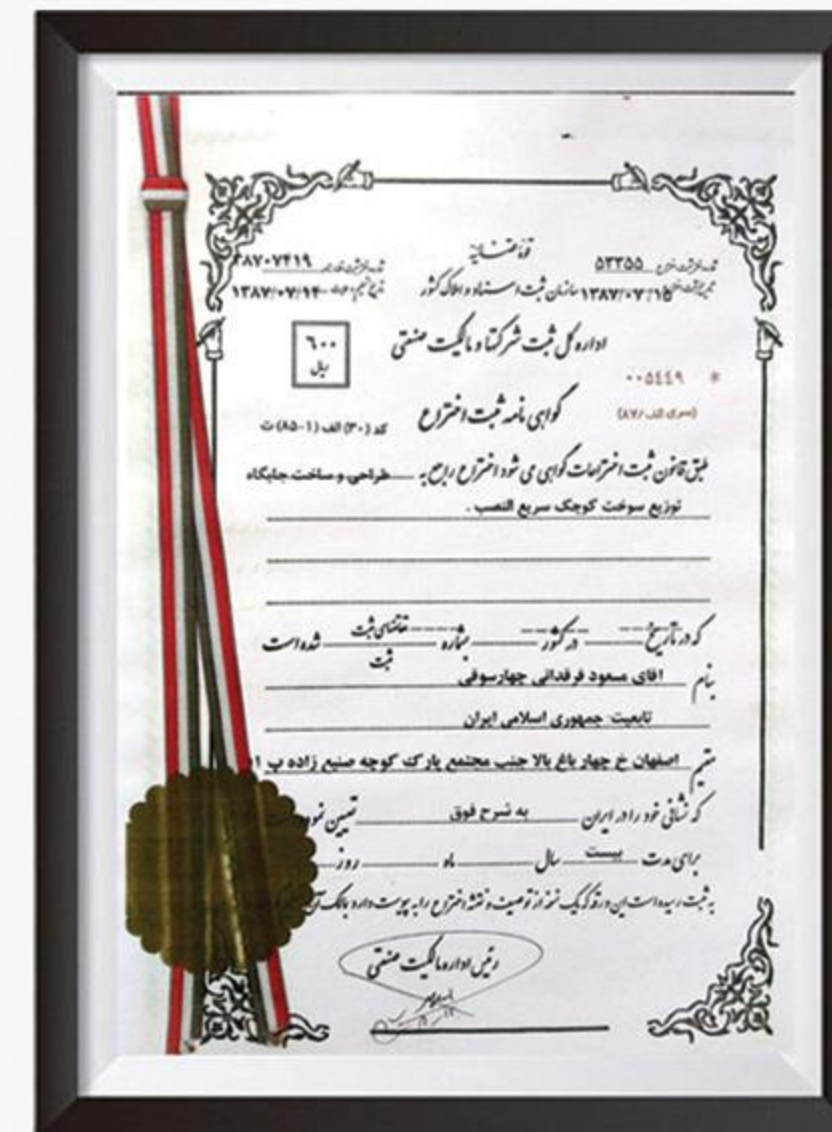 قوه قضائیه
شماره ثبت اختراع ۵۳۳۵۵
تاریخ ثبت اختراع ۱۳۸۷/۰۷/۱۵
سازمان ثبت اسناد و املاک کشور
۳۸۷۰۷۴۱۹
۱۳۸۷/۰۷/۱۴
اداره کل ثبت شرکتها و مالکیت صنعتی
۶۰۰
ریال
* ۰۰۵۴۴۹
(سری الف/۸۷)
گواهی نامه ثبت اختراع
کد (۳۰) الف (۱-۸۵) ت
طبق قانون ثبت اختراعات گواهی می شود اختراع راجع به طراحی و ساخت جایگاه
توزیع سوخت کوچک سریع النصب .
که در تاریخ --- در کشور --- بشماره --- تقاضای ثبت شده است
ثبت
بنام آقای مسعود فرقدانی چهارسوقی
تابعیت جمهوری اسلامی ایران
مقیم اصفهان خ چهار باغ بالا جنب مجتمع پارک کوچه صنیع زاده پ
که نشانی خود را در ایران به شرح فوق تعیین
برای مدت بیست سال ماه روز
به ثبت رسیده است این ورقه که یک نسخه از توصیف و نقشه اختراع را به پیوست دارد
رئیس اداره مالکیت صنعتی